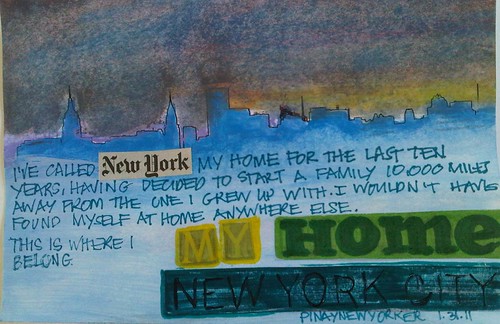 I'VE CALLED New York MY HOME FOR THE LAST TEN
YEARS, HAVING DECIDED TO START A FAMILY 10,000 MILES
AWAY FROM THE ONE I GREW UP WITH. I WOULDN'T HAVE
FOUND MYSELF AT HOME ANYWHERE ELSE.
THIS IS WHERE I
BELONG.
MY HOME
NEW YORK CITY
PINAYNEWYORKER 1.31.11